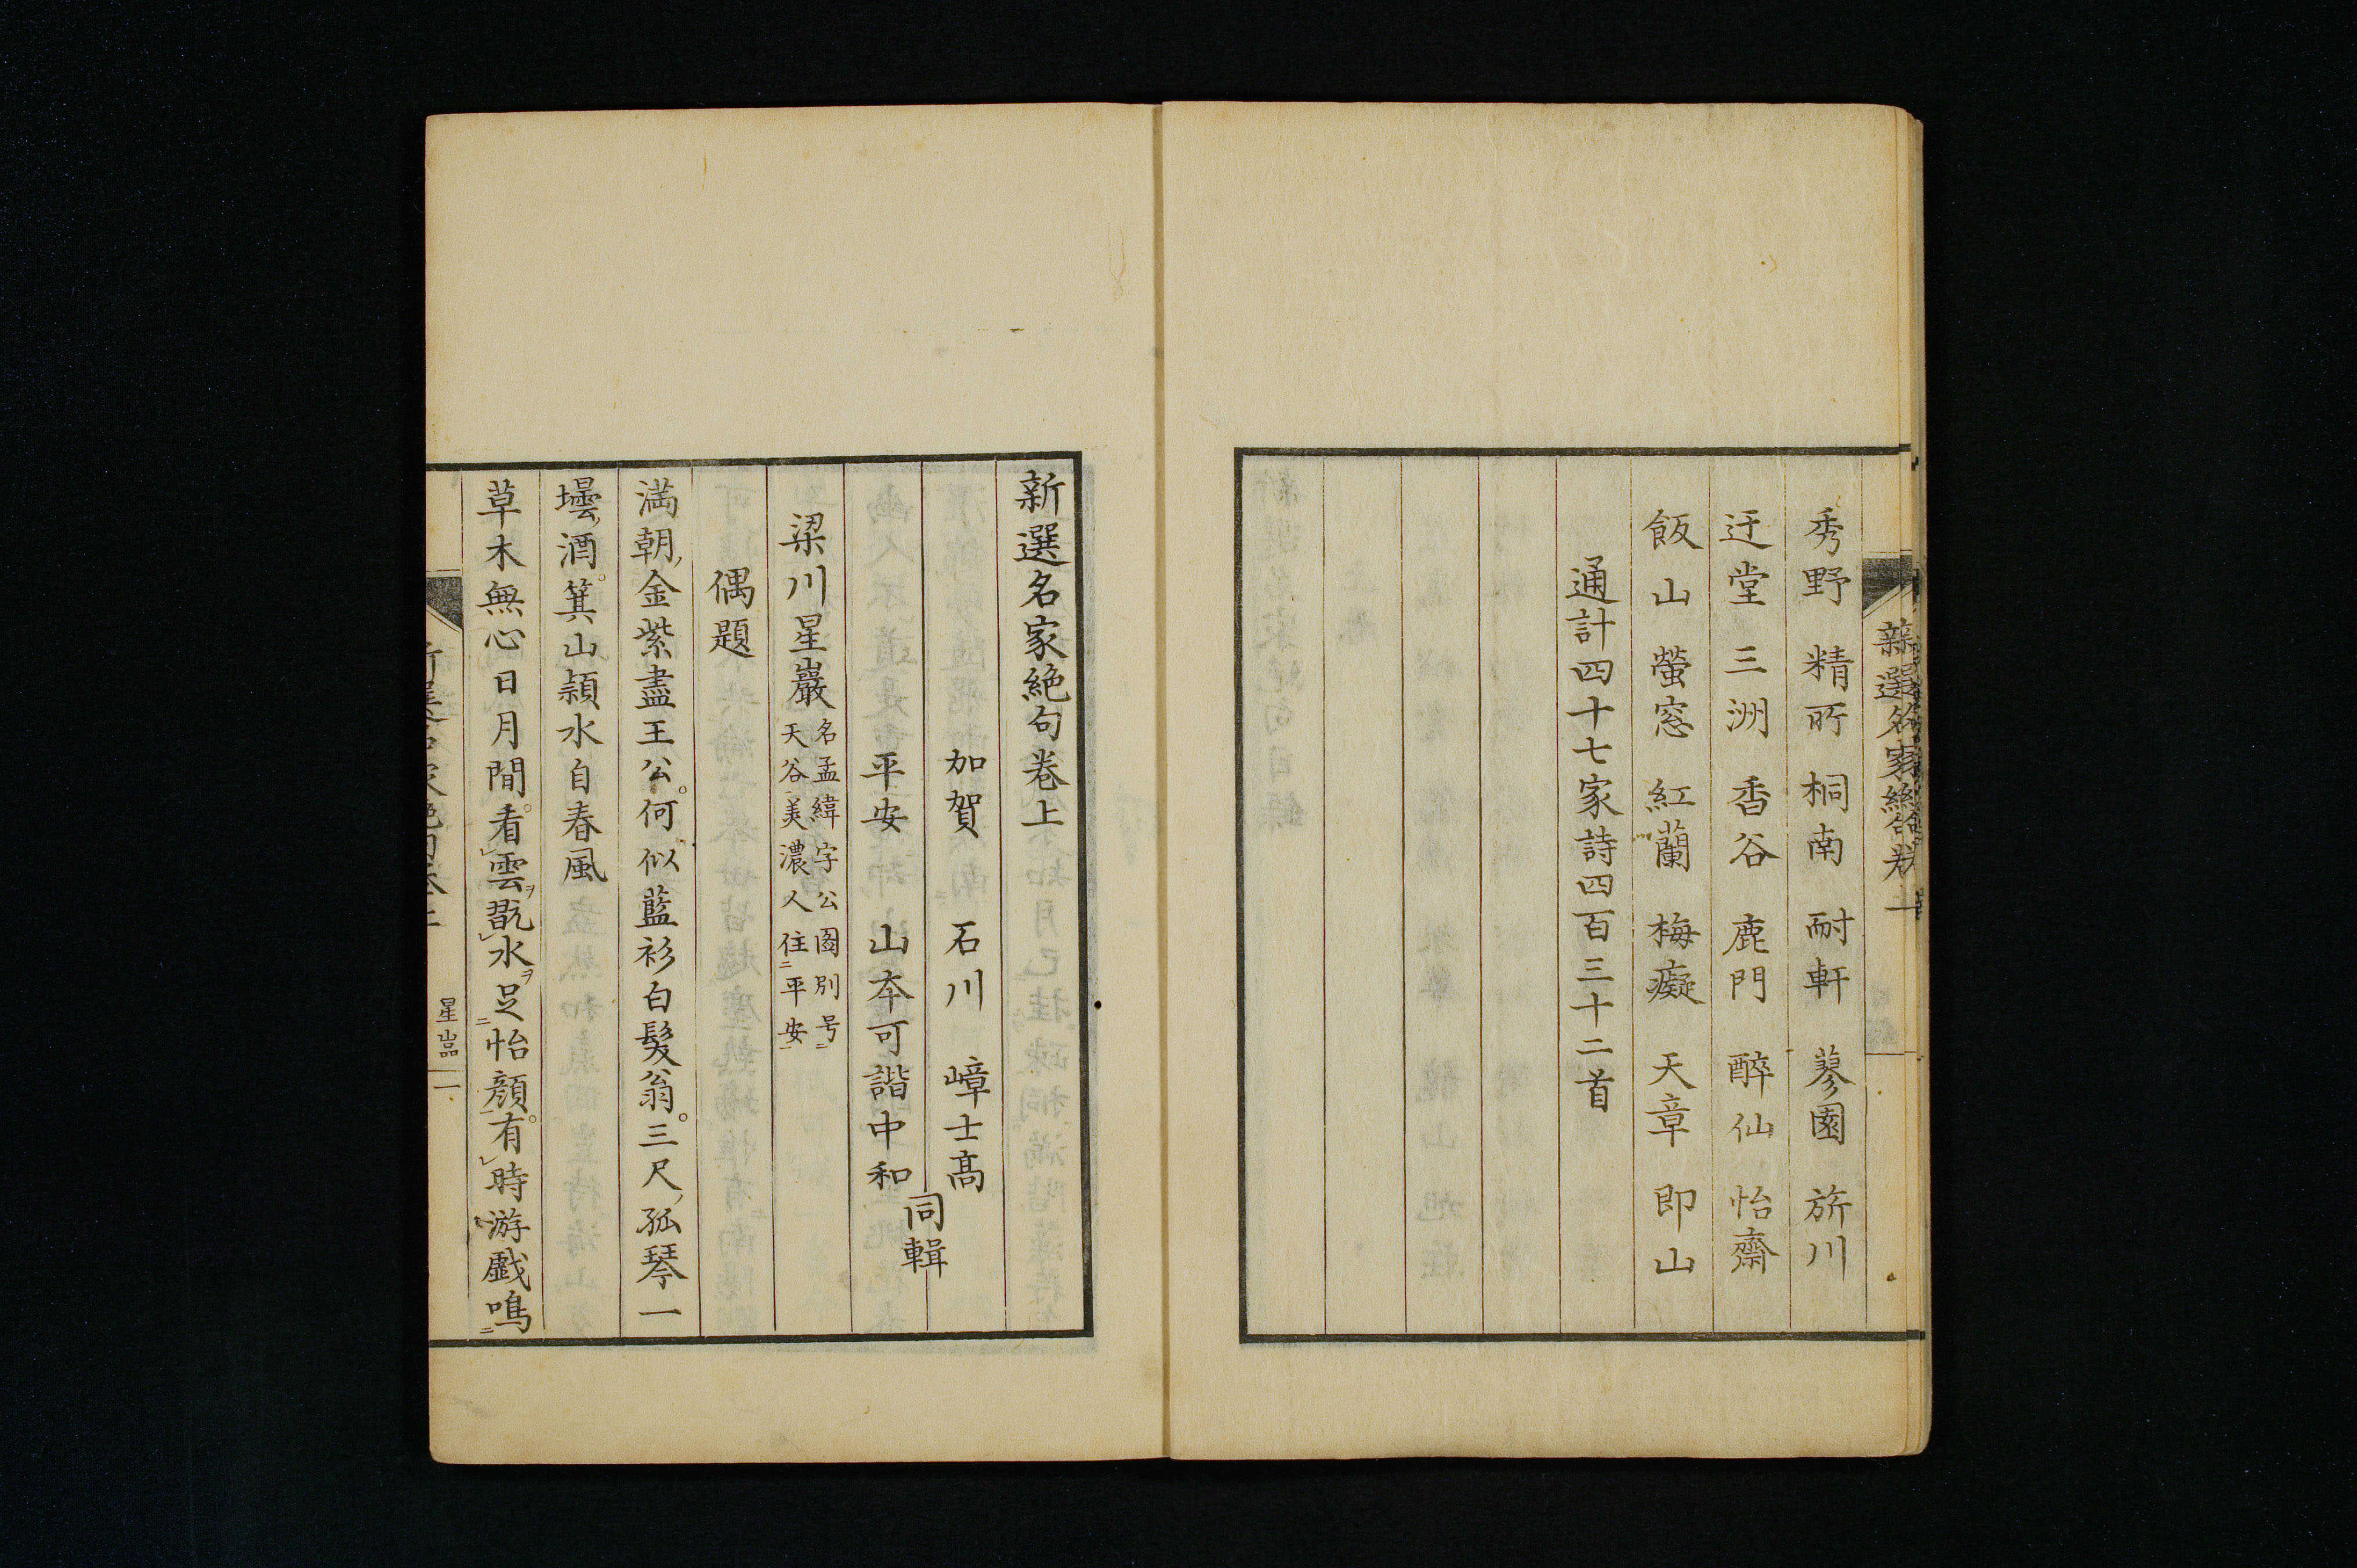 新選名家絶句巻上
秀野 精所 桐南 耐軒 蓼園 旂川
迂堂 三洲 香谷 鹿門 醉仙 怡齋
飯山 螢窓 紅蘭 梅癡 天章 即山
通計四十七家詩四百三十二首
新選名家絶句巻上
加賀 石川 嶂士高
平安 山本可諧中和
同輯
梁川星巖
名孟緯字公圖別号
天谷美濃人住ニ平安一
偶題
満朝金紫盡王公。何似藍衫白髮翁。三尺孤琴一
壜酒。箕山潁水自春風
草木無心日月間。看レ雲ヲ翫レ水ヲ足ニ怡顔一。有レ時游戯鳴ニ
星嵓 一